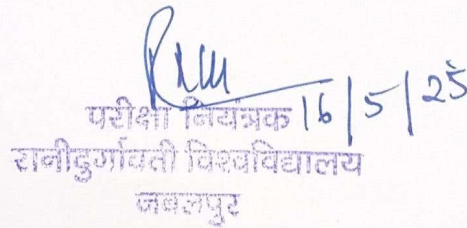 परीक्षा नियंत्रक 16/5/25
रानीदुर्गावती विश्वविद्यालय
जबलपुर